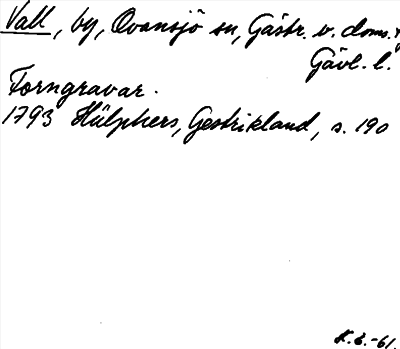 Vall, by, Ovansjö sn, Gästr. v. doms.
Gävl. l.
Forngravar.
1793 Hülphers, Gestrikland, s. 190
K.E.-61.